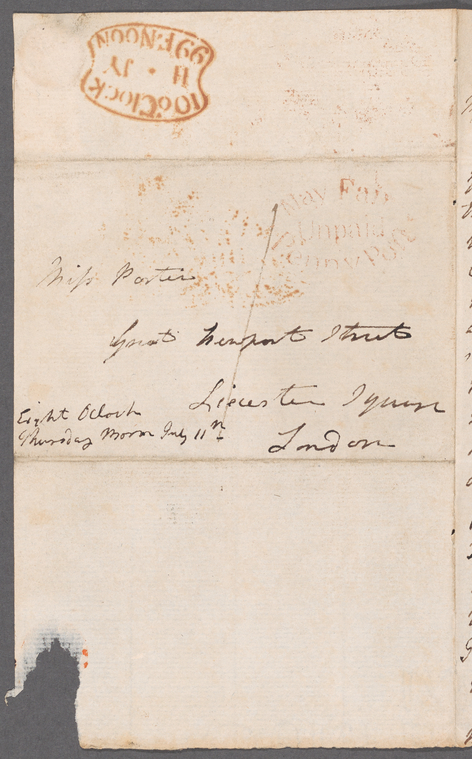 10 o'Clock
11 • JY
99 F.NOON
May Fair
Unpaid
Penny Post
Miss Porter
Great Newport Street
Liecester Square
London
Eight OClock
Thursday Morn July 11th